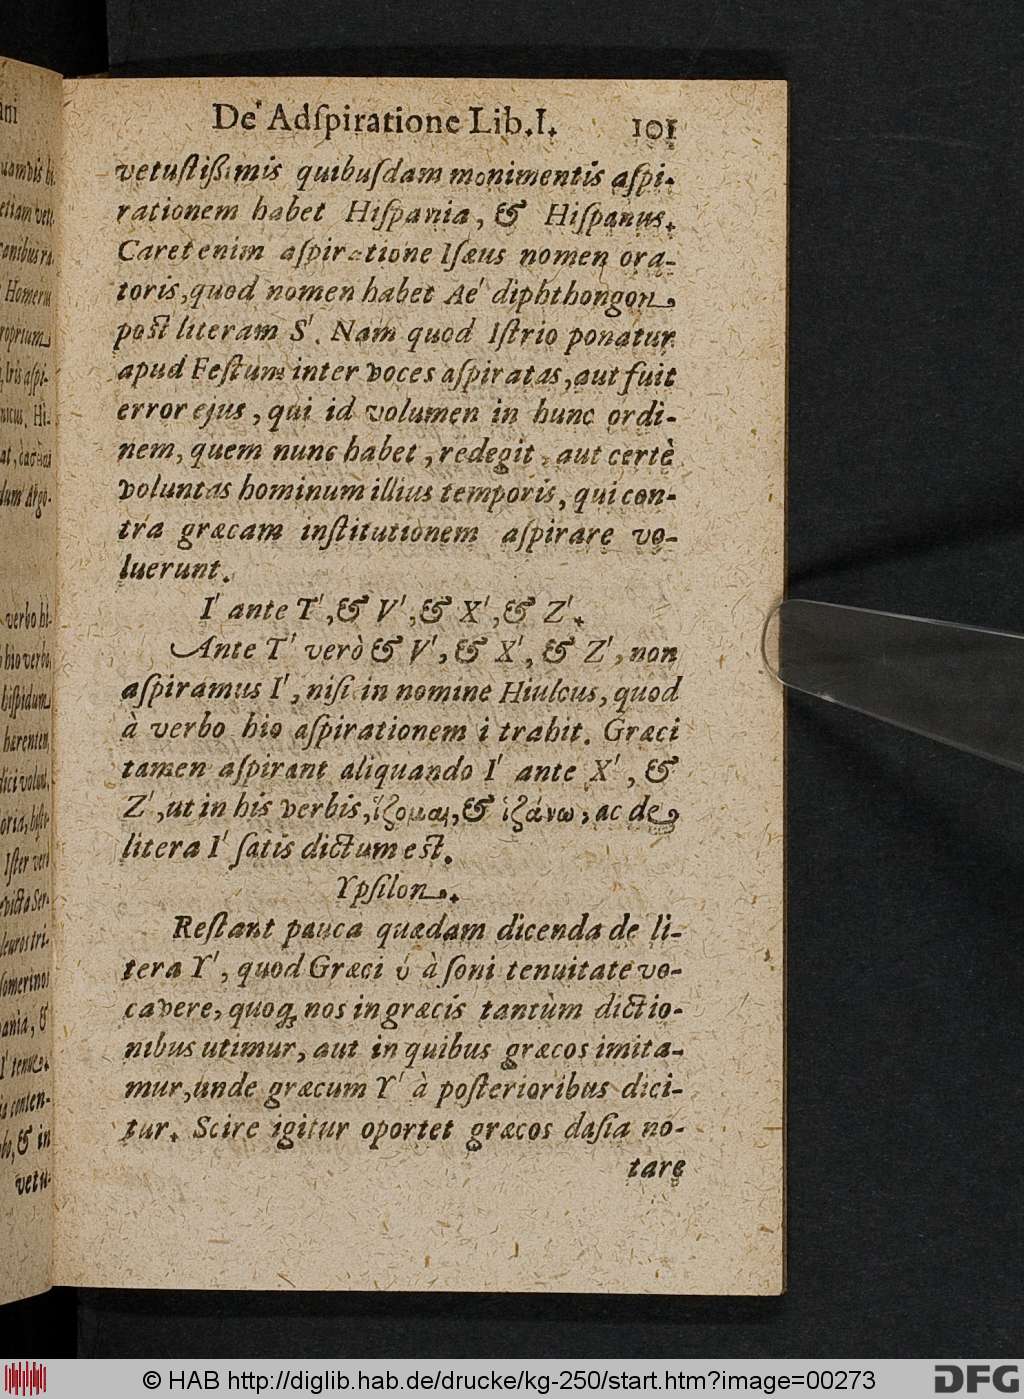 De Adſpiratione Lib. I. 101
vetuſtiſſimis quibuſdam monimentis aſpi-
rationem habet Hiſpania, & Hiſpanus.
Caret enim aſpiratione Iſæus nomen ora-
toris, quod nomen habet Ae' diphthongon
poſt literam S'. Nam quod Iſtrio ponatur
apud Feſtum inter voces aſpiratas, aut fuit
error ejus, qui id volumen in hunc ordi-
nem, quem nunc habet, redegit, aut certè
voluntas hominum illius temporis, qui con-
tra græcam inſtitutionem aſpirare vo-
luerunt.
I' ante T', & V', & X', & Z'.
Ante T' verò & V', & X', & Z', non
aſpiramus I', niſi in nomine Hiulcus, quod
à verbo hio aſpirationem i trahit. Græci
tamen aſpirant aliquando I' ante X', &
Z', ut in his verbis, ἵζομαι, & ἱζάνω, ac de
litera I' ſatis dictum eſt.
Ypſilon.
Reſtant pauca quædam dicenda de li-
tera Y', quod Græci ὑ à ſoni tenuitate vo-
cavere, quoq; nos in græcis tantùm dictio-
nibus utimur, aut in quibus græcos imita-
mur, unde græcum Y' à poſterioribus dici-
tur. Scire igitur oportet græcos daſia no-
tare
verbo hi-
hio verbo,
hiſpidum
hærentem,
Iſter verò
& in
vetu-
© HAB http://diglib.hab.de/drucke/kg-250/start.htm?image=00273
DFG